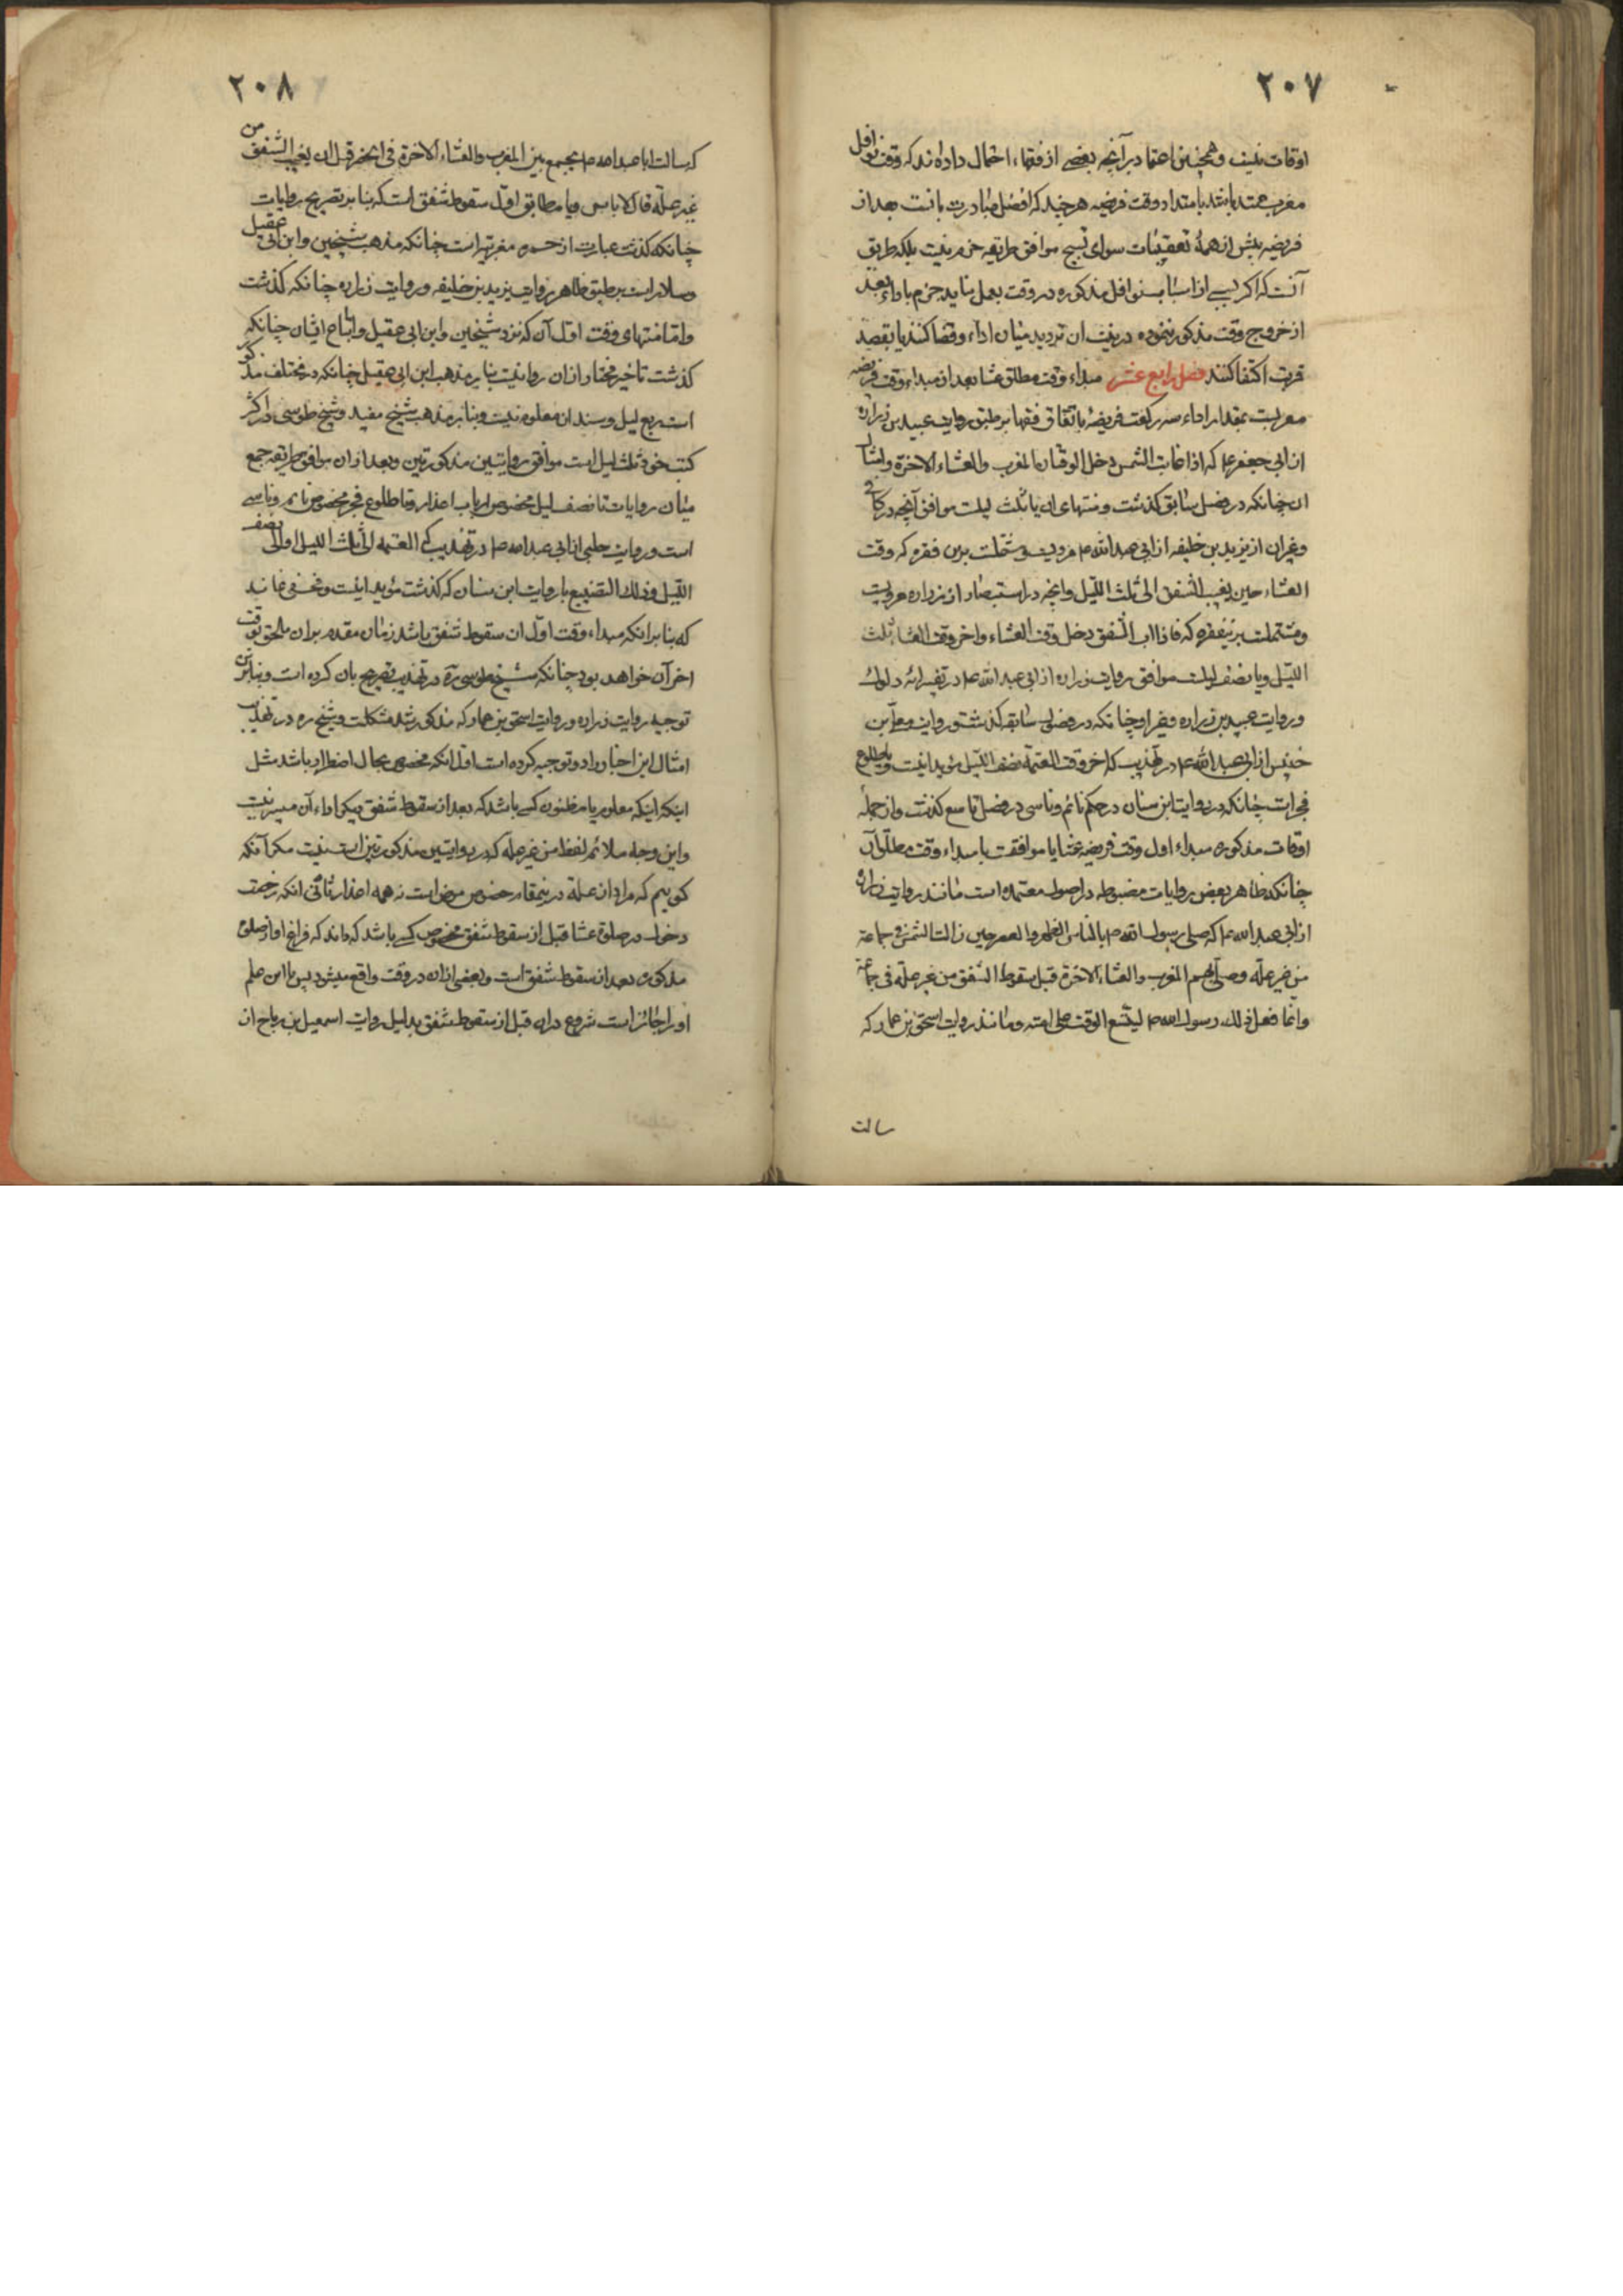 ٢٠٧
اوقات نیست و همچنین اعتماد بر آنچه بعضے از فقهاء احتمال داده‌اند که وقت نوافل
مغرب ممتد باشد بامتداد وقت فریضه هرچند که افضل مبادرت بانست بعد از
فریضه پیش از همهٔ تعقیبات سوای تسبیح موافق طریقه حزم نیست بلکه طریق
آنست که اگر کسے از اسباب نوافل مذکوره در وقت بعمل نیاید جزم باداء بعد
از خروج وقت مذکور ننموده در نیت ان تردید میان اداء و قضا کند یا بقصد
قربت اکتفا کند فصل رابع عشر مبداء وقت مطلق عشا بعد از مبداء وقت فریضه
مغربست بمقدار اداء سه رکعت فریضه باتفاق فقها بر طبق روایت عبید بن زراره
از ابی جعفر ع که اذا غابت الشمس دخل الوقتان المغرب والعشاء الاخرة و امثال
ان چنانکه در فصل سابق کذشت و منتهای ان یا ثلث لیلست موافق آنچه در کافی
و غیر ان از یزید بن خلیفه از ابی عبد الله م مرویست و مشتملست برین فقره که وقت
العشاء حین یغیب الشفق الی ثلث اللیل و انچه در استبصار از زراره مرویست
و مشتملست برین فقره که فاذا اب الشفق دخل وقت العشاء واخر وقت العشا ثلث
اللیل و یا نصف لیلست موافق روایت زراره از ابی عبد الله ع در تفسیر ائه دلوک
و روایت عبید بن زراره و غیر او چنانکه در فصول سابقه کذشت و روایت معلی بن
خنیس از ابی عبد الله ع در تهذیب که اخر وقت العتمة نصف اللیل مؤید اینست و یا طلوع
فجرات چنانکه در روایت ابن سنان در حکم نائم و ناسی در فصل تاسع کذشت و از جمله
اوقات مذکوره مبداء اول وقت فریضه عشا یا موافقت با مبداء وقت مطلق آن
چنانکه ظاهر بعض روایات مضبوطه در اصول معتمده است مانند روایت زراره
از ابی عبد الله ع که صلی رسول الله م بالناس الظهر والعصر حین زالت الشمس فی جماعة
من غیر علّه وصلی بهم المغرب والعشاء الاخرة قبل سقوط الشفق من غیر علّة فی جماعة
وانما فعل ذلک رسول الله م لیتسع الوقت علی امته و مانند روایت اسحق بن عمار که
سالت
٢٠٨
که سالت ابا عبد الله م یجمع بین المغرب والعشاء الاخرة فی الحضر قبل ان یغیب الشفق من
غیر علّة قال لا باس و یا مطابق اول سقوط شفق است که بنا بر تصریح روایات
چنانکه کذشت عبارت از حمره مغربیه است چنانکه مذهب شیخین و ابن ابی عقیل
و سلار است بر طبق ظاهر روایت یزید بن خلیفه و روایت زراره چنانکه کذشت
و اما منتهای وقت اول آن که نزد شیخین و ابن ابی عقیل و اتباع ایشان چنانکه
کذشت تاخیر مختار از ان روا نیست بنابر مذهب ابن ابی عقیل چنانکه در مختلف مذکور
است ربع لیل و سند ان معلوم نیست و بنابر مذهب شیخ مفید و شیخ طوسی در اکثر
کتب خود ثلث لیل است موافق روایتین مذکورتین و بعد از ان موافق طریقه جمع
میان روایات تا نصف لیل مخصوص ارباب اعذار و تا طلوع فجر مخصوص نائم و ناسی
است و روایت حلبی از ابی عبد الله م در تهذیب که العتمة الی ثلث اللیل او الی نصف
اللیل وذلک التضییع با روایت ابن سنان که کذشت مؤید اینست و مخفی نماند
که بنابر انکه مبداء وقت اول ان سقوط شفق باشد زمان مقدم بران ملحق بوقت
اخر آن خواهد بود چنانکه شیخ طوسی ره در تهذیب تصریح بان کرده است و بنابرین
توجیه روایت زراره و روایت اسحق بن عمار که مذکور شد مشکلست و شیخ ره در تهذیب
امثال این اخبار را دو توجیه کرده است اول انکه مخصوص بحال اضطرار باشد مثل
اینکه اینکه معلوم یا مظنون کسے باشد که بعد از سقوط شفق دیکر اداء آن میسر نیست
و این وجه ملائم لفظ من غیر علّة که در روایتین مذکورتین است نیست مکر آنکه
کوییم که مراد از علة در ینمقام خصوص مرض است نه همه اعذار ثانی انکه رخصت
دخول در صلوة عشا قبل از سقوط شفق مخصوص کسے باشد که داند که فراغ او از صلوة
مذکوره بعد از سقوط شفق است و بعضی از ان در وقت واقع میشود پس با این علم
او را جائز است شروع دران قبل از سقوط شفق بدلیل روایت اسمعیل بن رباح از